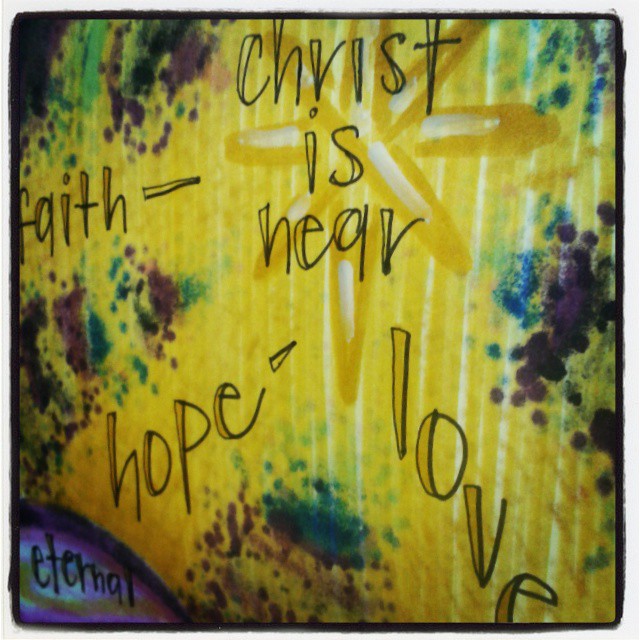 christ
is
near
faith –
hope -
love
eternal